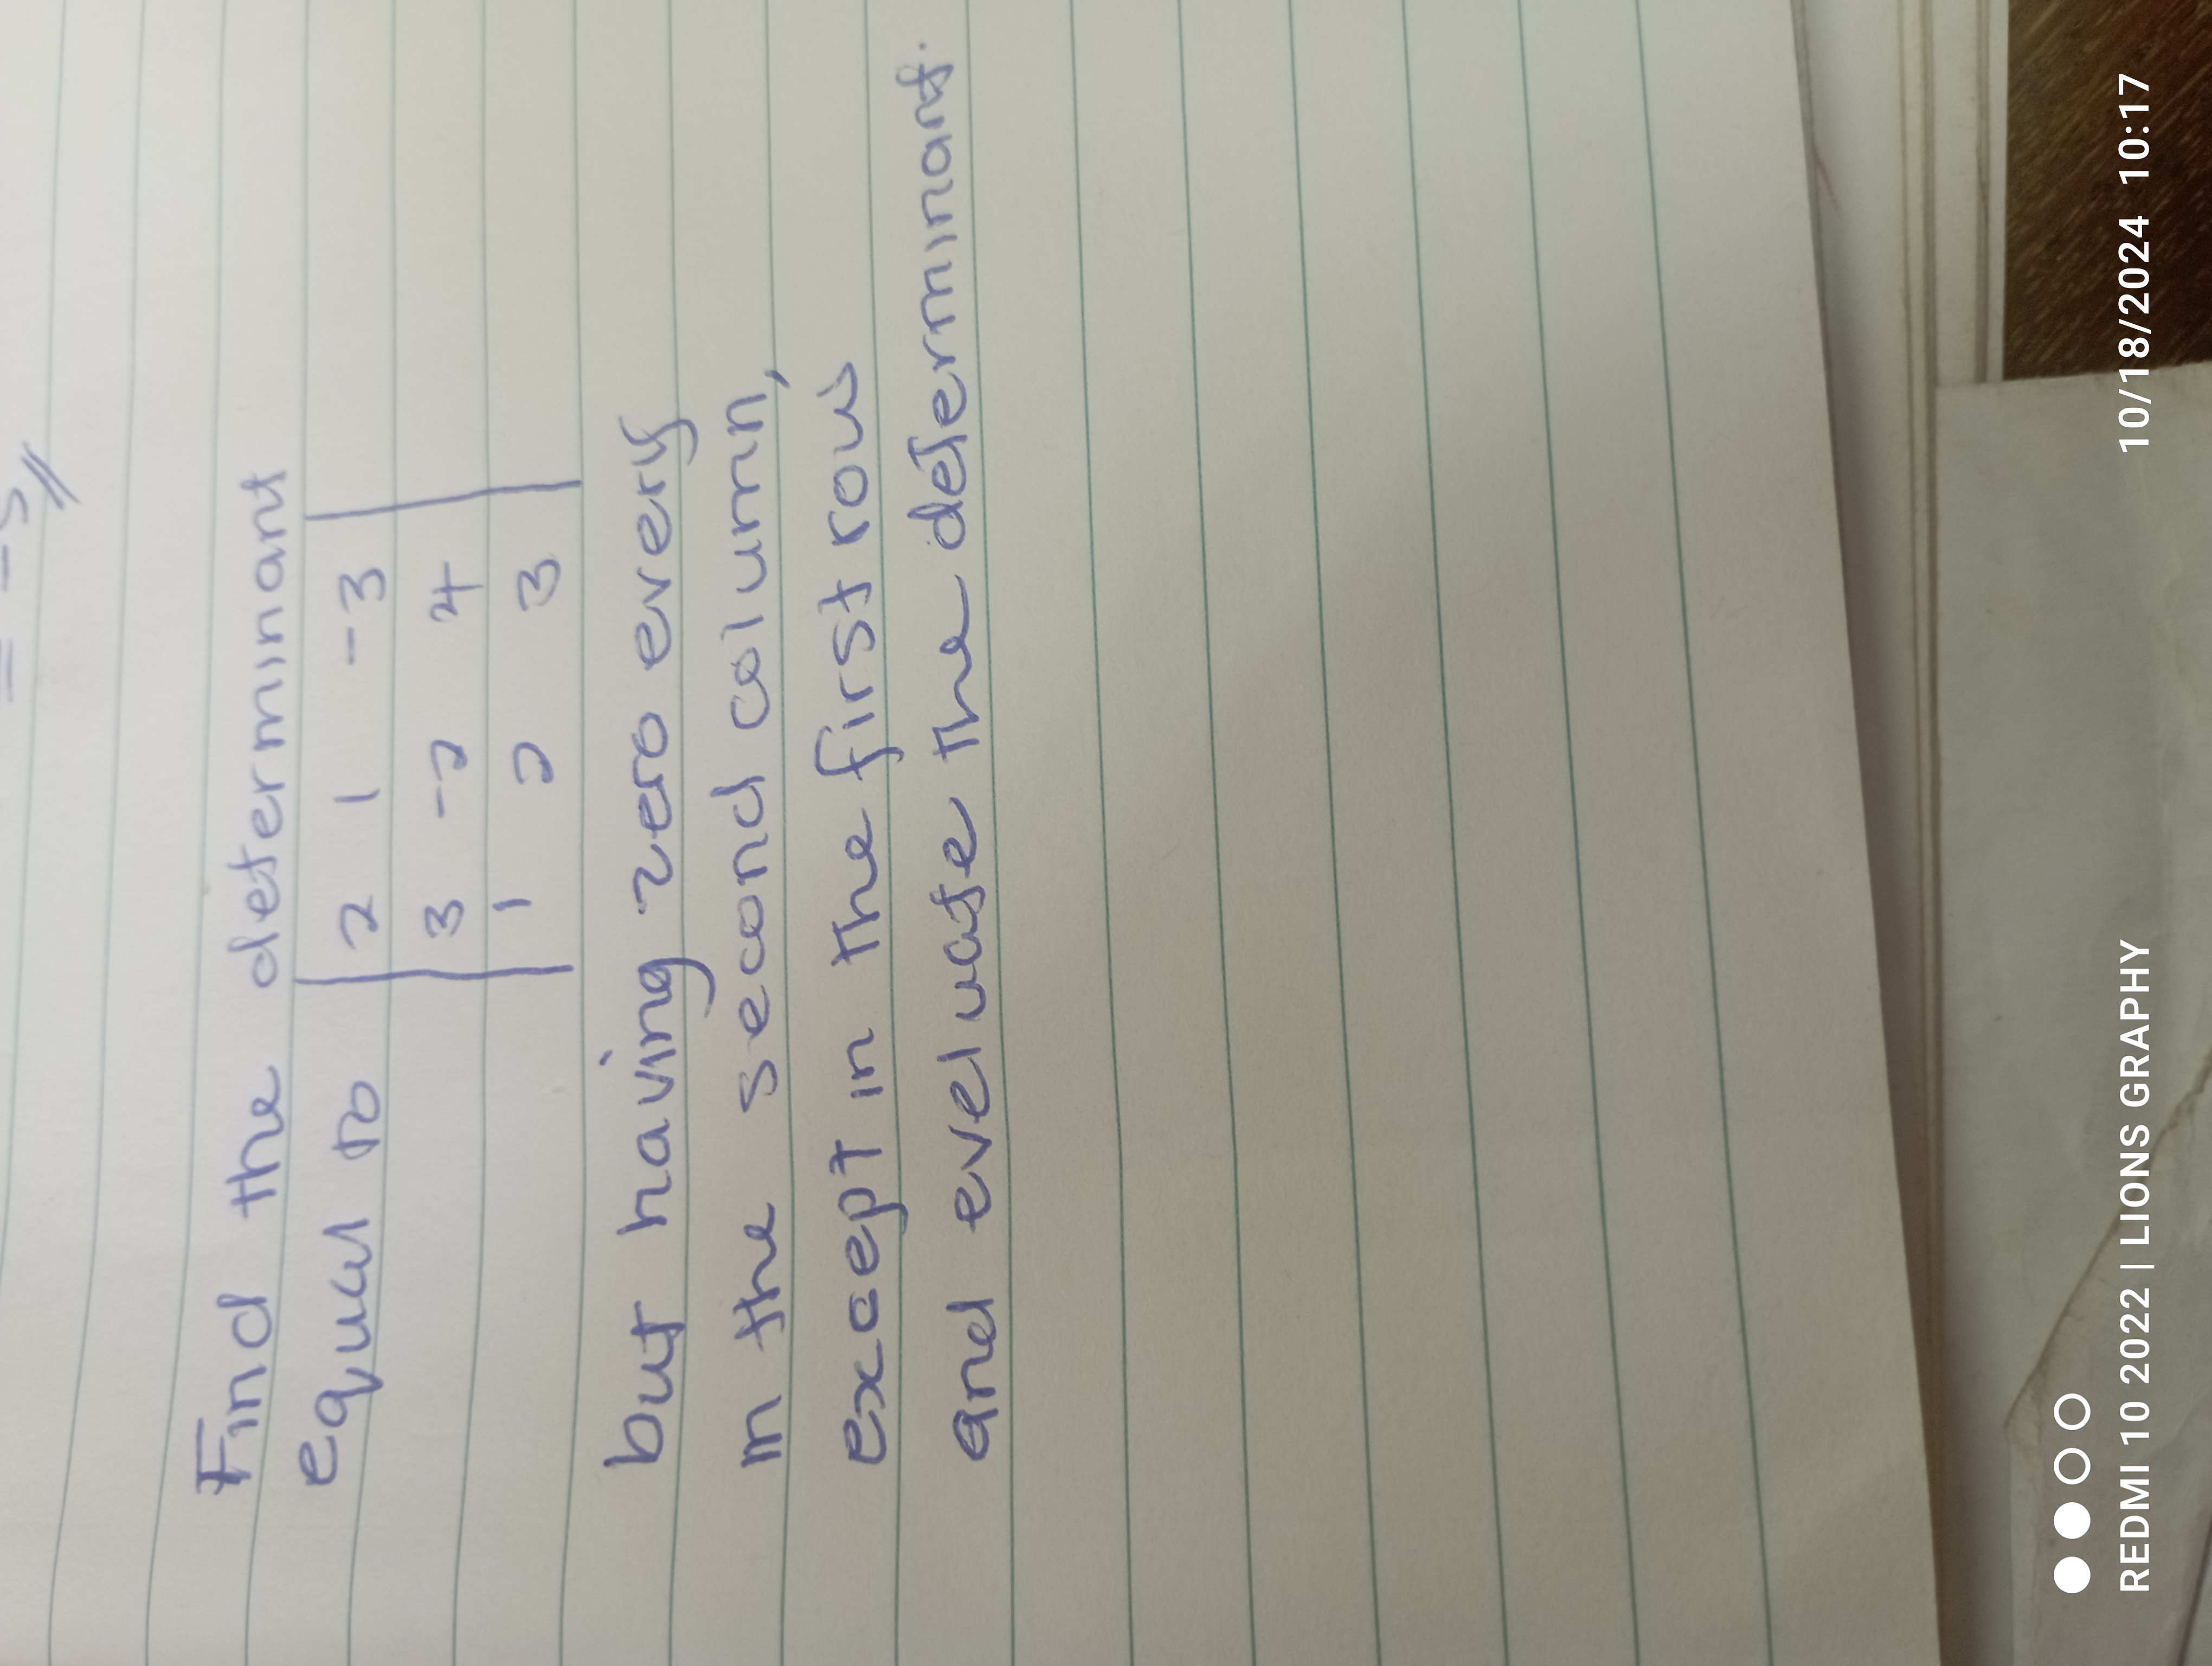 = -5//
Find the determinant
equal to | 2 1 -3 |
| 3 -2 4 |
| 1 2 3 |
but having zero every
in the second column,
except in the first row
and eveluate the determinant.
REDMI 10 2022 | LIONS GRAPHY
10/18/2024 10:17